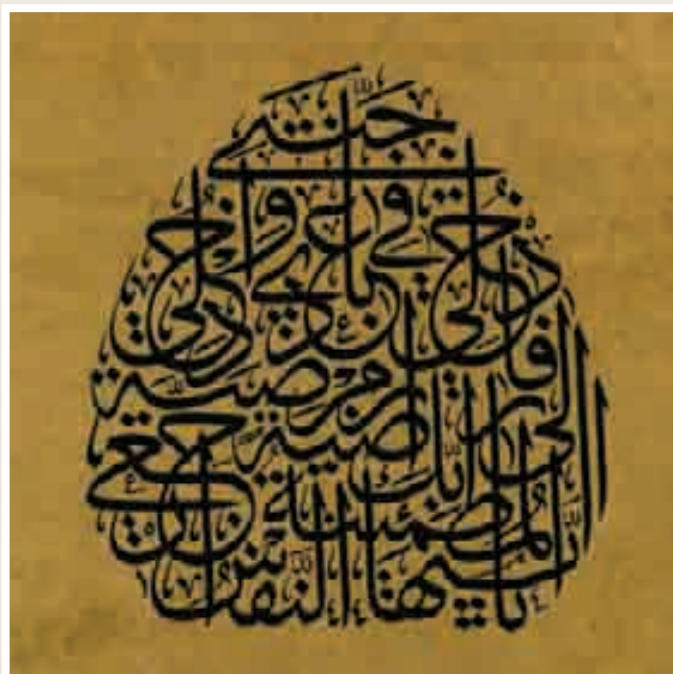 يا ايتها النفس
المطمئنة ارجعي
الى ربك راضية مرضية
فادخلي في عبادي وادخلي
جنتي